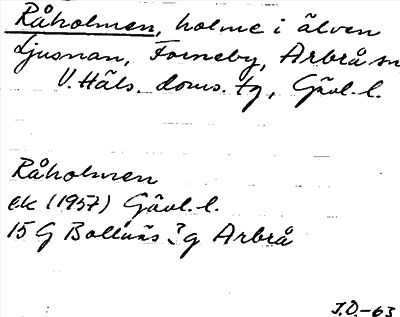 Råholmen, holme i älven
Ljusnan, Forneby, Arbrå sn
V. Häls. doms. tg, Gävl. l.
Råholmen
ek (1957) Gävl. l.
15 G Bollnäs ? g Arbrå
J.O.-63